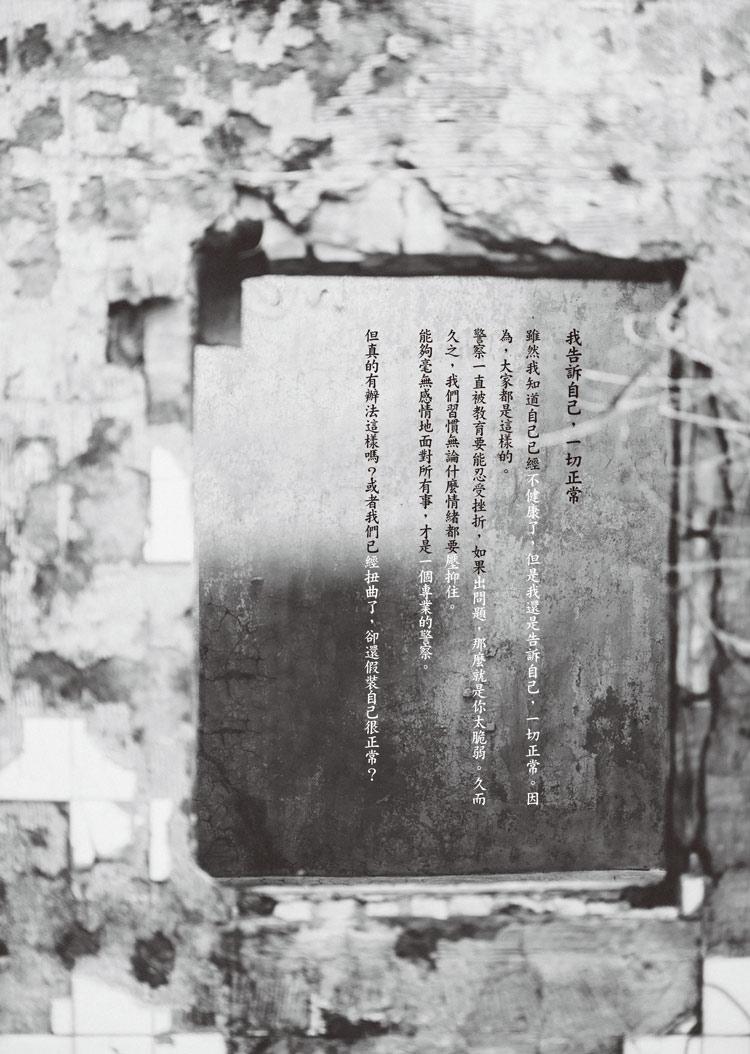 我告訴自己，一切正常
雖然我知道自己已經不健康了，但是我還是告訴自己，一切正常。因
為，大家都是這樣的。
警察一直被教育要能忍受挫折，如果出問題，那麼就是你太脆弱。久而
久之，我們習慣無論什麼情緒都要壓抑住。
能夠毫無感情地面對所有事，才是一個專業的警察。
但真的有辦法這樣嗎？或者我們已經扭曲了，卻還假裝自己很正常？